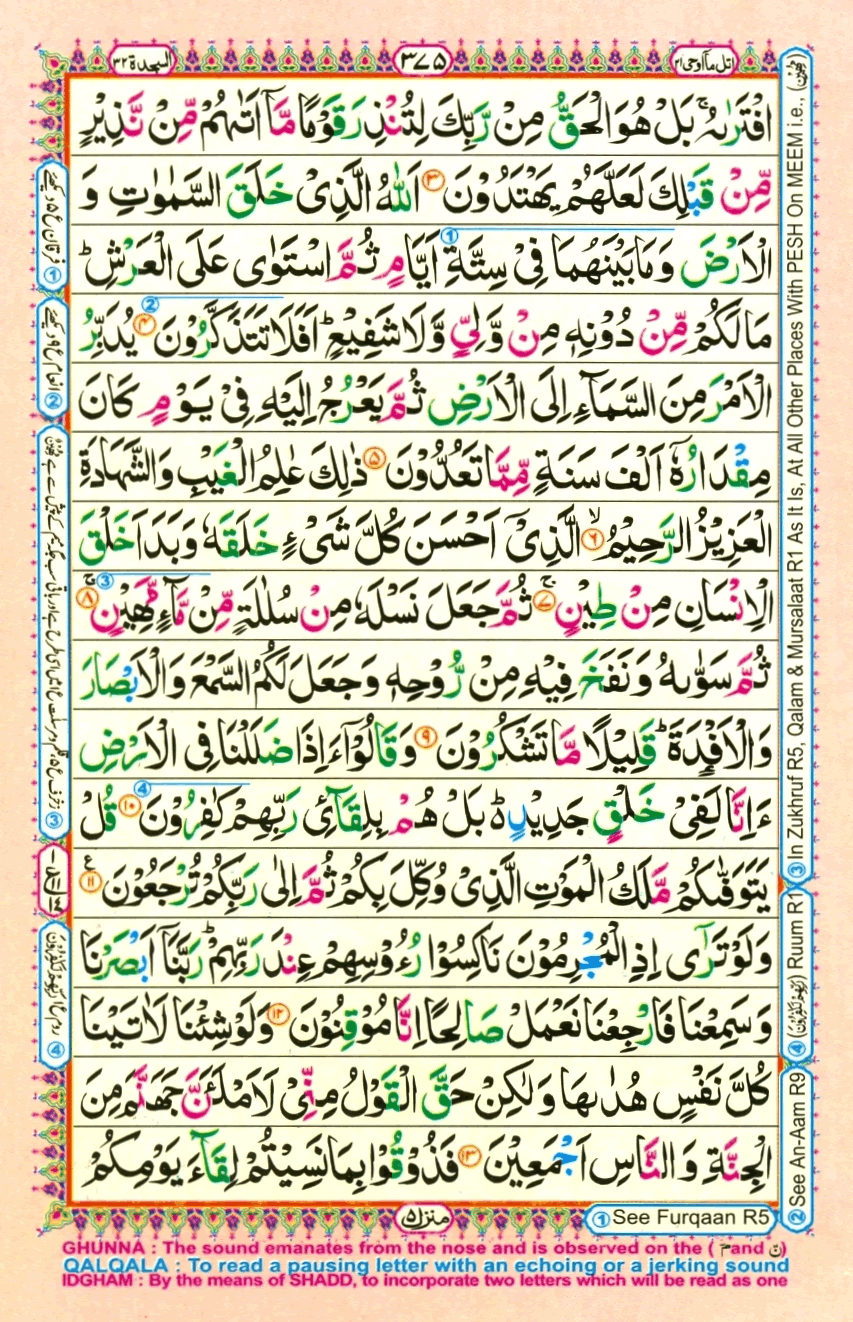 السجدة ۳۲
۳۷۵
اتل مآ اوحی ۲۱
افْتَرٰىهُ ۚ بَلْ هُوَ الْحَقُّ مِنْ رَّبِّكَ لِتُنْذِرَ قَوْمًا مَّاۤ اَتٰىهُمْ مِّنْ نَّذِیْرٍ
مِّنْ قَبْلِكَ لَعَلَّهُمْ یَهْتَدُوْنَ ۳ اَللّٰهُ الَّذِیْ خَلَقَ السَّمٰوٰتِ وَ
الْاَرْضَ وَمَا بَیْنَهُمَا فِیْ سِتَّةِ اَیَّامٍ ثُمَّ اسْتَوٰی عَلَی الْعَرْشِ ؕ
مَا لَكُمْ مِّنْ دُوْنِهٖ مِنْ وَّلِیٍّ وَّلَا شَفِیْعٍ ؕ اَفَلَا تَتَذَكَّرُوْنَ ۴ یُدَبِّرُ
الْاَمْرَ مِنَ السَّمَآءِ اِلَی الْاَرْضِ ثُمَّ یَعْرُجُ اِلَیْهِ فِیْ یَوْمٍ كَانَ
مِقْدَارُهٗۤ اَلْفَ سَنَةٍ مِّمَّا تَعُدُّوْنَ ۵ ذٰلِكَ عٰلِمُ الْغَیْبِ وَالشَّهَادَةِ
الْعَزِیْزُ الرَّحِیْمُ ۙ۶ الَّذِیْۤ اَحْسَنَ كُلَّ شَیْءٍ خَلَقَهٗ وَبَدَاَ خَلْقَ
الْاِنْسَانِ مِنْ طِیْنٍ ۚ۷ ثُمَّ جَعَلَ نَسْلَهٗ مِنْ سُلٰلَةٍ مِّنْ مَّآءٍ مَّهِیْنٍ ۚ۸
ثُمَّ سَوّٰىهُ وَنَفَخَ فِیْهِ مِنْ رُّوْحِهٖ وَجَعَلَ لَكُمُ السَّمْعَ وَالْاَبْصَارَ
وَالْاَفْـِٕدَةَ ؕ قَلِیْلًا مَّا تَشْكُرُوْنَ ۹ وَقَالُوْۤا ءَاِذَا ضَلَلْنَا فِی الْاَرْضِ
ءَاِنَّا لَفِیْ خَلْقٍ جَدِیْدٍ ؕ۬ بَلْ هُمْ بِلِقَآئِ رَبِّهِمْ كٰفِرُوْنَ ۱۰ قُلْ
یَتَوَفّٰىكُمْ مَّلَكُ الْمَوْتِ الَّذِیْ وُكِّلَ بِكُمْ ثُمَّ اِلٰی رَبِّكُمْ تُرْجَعُوْنَ ۱۱
وَلَوْ تَرٰۤی اِذِ الْمُجْرِمُوْنَ نَاكِسُوْا رُءُوْسِهِمْ عِنْدَ رَبِّهِمْ ؕ رَبَّنَاۤ اَبْصَرْنَا
وَسَمِعْنَا فَارْجِعْنَا نَعْمَلْ صَالِحًا اِنَّا مُوْقِنُوْنَ ۱۲ وَلَوْ شِئْنَا لَاٰتَیْنَا
كُلَّ نَفْسٍ هُدٰىهَا وَلٰكِنْ حَقَّ الْقَوْلُ مِنِّیْ لَاَمْلَـَٔنَّ جَهَنَّمَ مِنَ
الْجِنَّةِ وَالنَّاسِ اَجْمَعِیْنَ ۱۳ فَذُوْقُوْا بِمَا نَسِیْتُمْ لِقَآءَ یَوْمِكُمْ
منزل ۵
① See Furqaan R5
② See An-Aam R9
③ In Zukhruf R5, Qalam & Mursalaat R1 As It Is, At All Other Places With PESH On MEEM i.e.,
④ Ruum R1
GHUNNA : The sound emanates from the nose and is observed on the ( مّ and نّ )
QALQALA : To read a pausing letter with an echoing or a jerking sound
IDGHAM : By the means of SHADD, to incorporate two letters which will be read as one